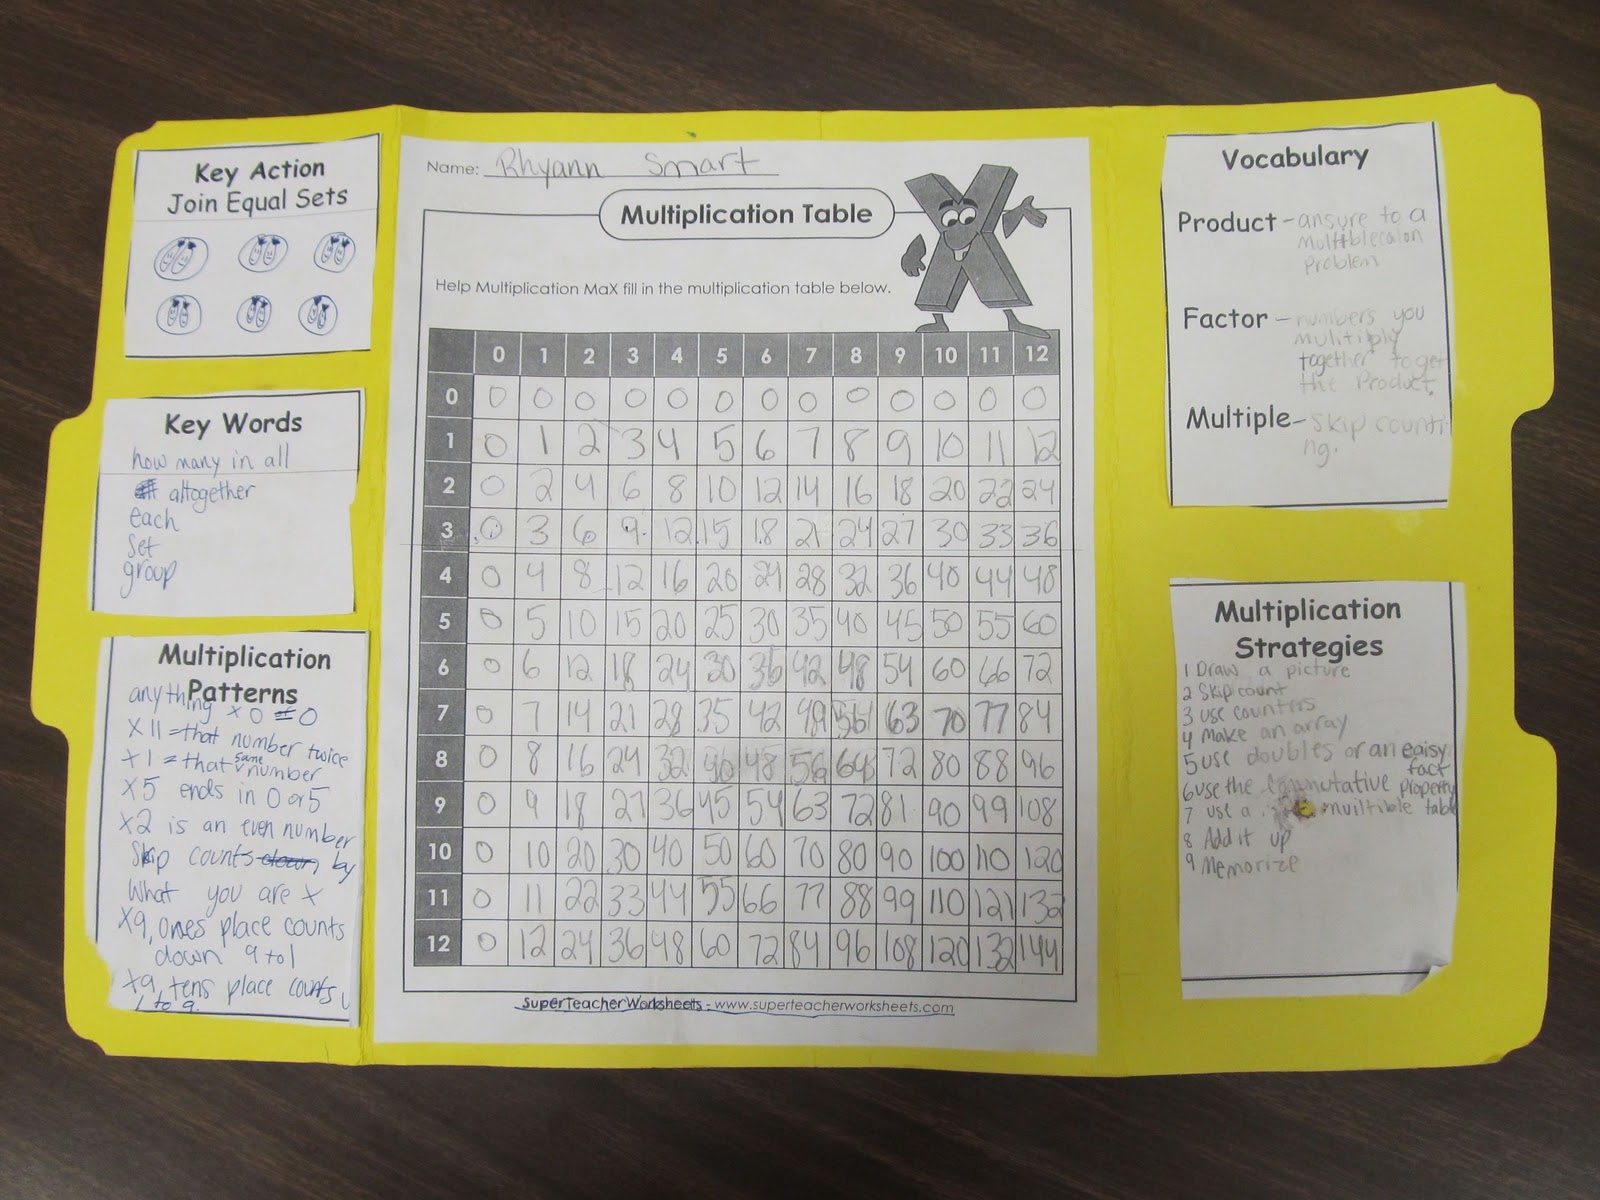 Key Action
Join Equal Sets
Key Words
how many in all
altogether
each
set
group
Multiplication
Patterns
anything x 0 = 0
x 11 = that number twice
x 1 = that same number
x5 ends in 0 or 5
x2 is an even number
Skip counts down by
What you are x
x9, ones place counts
down 9 to 1
x9, tens place counts
1 to 9.
Name: Rhyann Smart
Multiplication Table
Help Multiplication MaX fill in the multiplication table below.
0 1 2 3 4 5 6 7 8 9 10 11 12
0 0 0 0 0 0 0 0 0 0 0 0 0 0
1 0 1 2 3 4 5 6 7 8 9 10 11 12
2 0 2 4 6 8 10 12 14 16 18 20 22 24
3 0 3 6 9 12 15 18 21 24 27 30 33 36
4 0 4 8 12 16 20 24 28 32 36 40 44 48
5 0 5 10 15 20 25 30 35 40 45 50 55 60
6 0 6 12 18 24 30 36 42 48 54 60 66 72
7 0 7 14 21 28 35 42 49 56 63 70 77 84
8 0 8 16 24 32 40 48 56 64 72 80 88 96
9 0 9 18 27 36 45 54 63 72 81 90 99 108
10 0 10 20 30 40 50 60 70 80 90 100 110 120
11 0 11 22 33 44 55 66 77 88 99 110 121 132
12 0 12 24 36 48 60 72 84 96 108 120 132 144
SuperTeacherWorksheets - www.superteacherworksheets.com
Vocabulary
Product - ansure to a
multiblecation
problem
Factor - numbers you
mulitiply
together to get
the Product.
Multiple - skip counti
ng.
Multiplication
Strategies
1 Draw a picture
2 Skip count
3 use counters
4 Make an array
5 use doubles or an eaisy
fact
6 use the commutative property
7 use a muiltible table
8 Add it up
9 Memorize